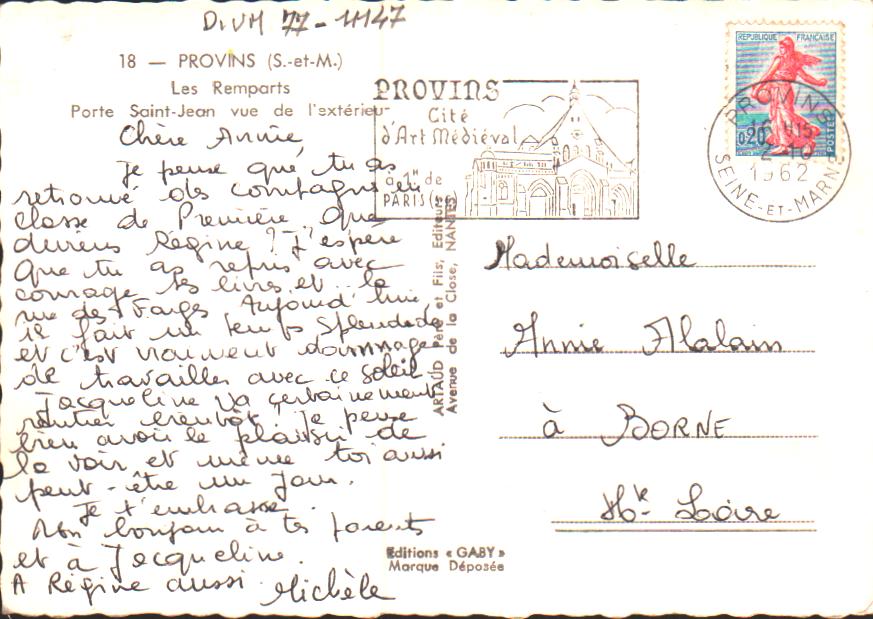 DIVM 77-1147
18 — PROVINS (S.-et-M.)
Les Remparts
Porte Saint-Jean vue de l'extérieur
PROVINS
Cité
d'Art Médiéval
à 1H de
PARIS (Est)
REPUBLIQUE FRANÇAISE
0,20
POSTES
PROVINS
16 H15
2-10
1962
SEINE-ET-MARNE
Chère Annie,
Je pense que tu as
retrouvé des compagnes en
classe de Première. Que
deviens Régine ? J'espère
que tu as repris avec
courage tes livres et la
rue des Farges Aujourd'hui,
il fait un temps splendide
et c'est vraiment dommage
de travailler avec ce soleil
Jacqueline va certainement
rentrer bientôt. Je pense
bien avoir le plaisir de
la voir et même toi aussi
peut-être un jour.
Je t'embrasse.
Mon bonjour à tes parents
et à Jacqueline.
A Régine aussi. Michèle
ARTAUD Père et Fils, Editeurs
Avenue de la Close, NANTES
Mademoiselle
Annie Alalain
à BORNE
Hte Loire
Editions « GABY »
Marque Déposée